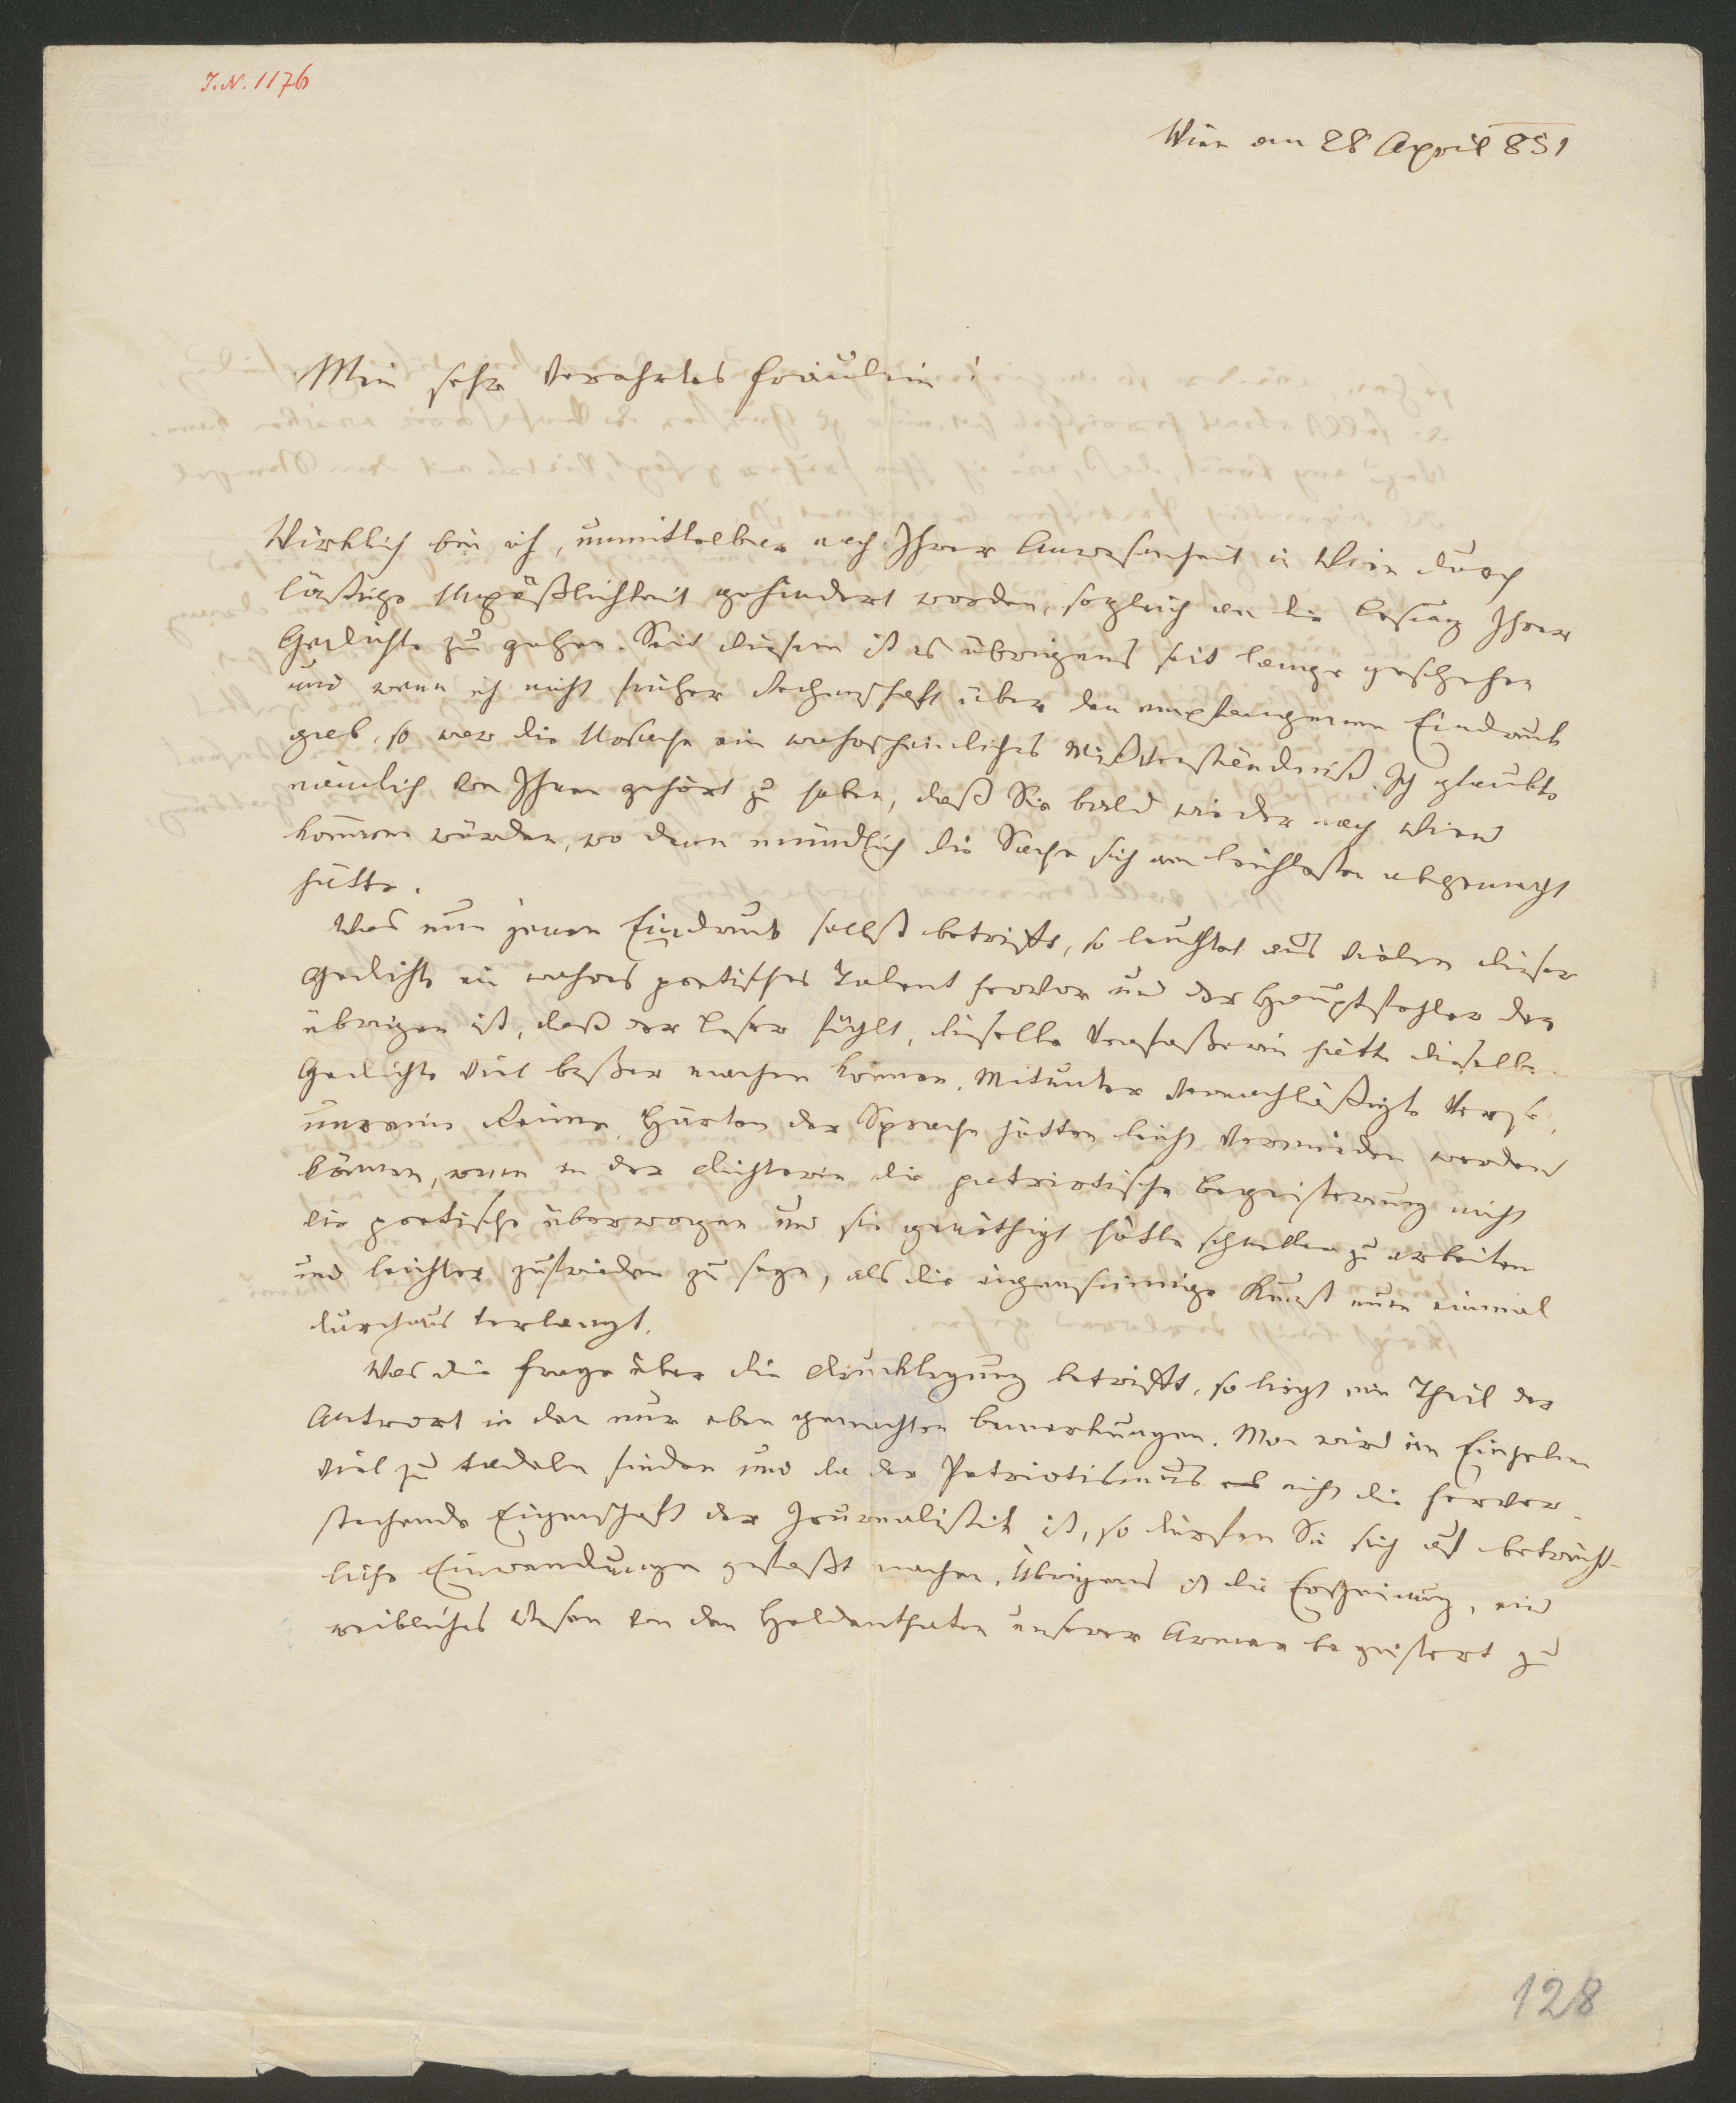 J.N. 1176
Wien am 28 April 851
Mein sehr verehrtes Fräulein!
Wirklich bin ich, unmittelbar nach Ihrer Anwesenheit in Wien durch
läßtige Unpäßlichkeit gehindert worden, sogleich an die Lesung Ihrer
Gedichte zu gehen. Seit diesem ist es übrigens seit lange geschehen
und wenn ich nicht früher Rechenschaft über den empfangenen Eindruck
gab, so war die Ursache ein wahrscheinliches Mißverständniß. Ich glaubte
nämlich von Ihnen gehört zu haben, daß Sie bald wieder nach Wien
kommen würden, wo denn mündlich die Sache sich am leichtesten abgemacht
hätte.
Was nun jenen Eindruck selbst betrifft, so leuchtet aus vielen dieser
Gedichte ein wahres poetisches Talent hervor und der Hauptfehler der
übrigen ist, daß der Leser fühlt, dieselbe Verfaßerin hätte dieselben
Gedichte viel beßer machen können. Mitunter vernachläßigte Verse,
unreine Reime, Härten der Sprache hätten leicht vermieden werden
können, wenn in der Dichterin die patriotische Begeisterung nicht
die poetische überwogen und sie genöthigt hätte schneller zu arbeiten
und leichter zufrieden zu seyn, als die eigensinnige Kunst nun einmal
durchaus verlangt.
Was die Frage über die Drucklegung betrifft, so liegt ein Theil der
Antwort in den nur eben gemachten Bemerkungen. Man wird im Einzelnen
viel zu tadeln finden und da der Patriotismus nicht die hervor-
stechende Eigenschaft der Journalistik ist, so dürfen Sie sich auf beträcht-
liche Einwendungen gefaßt machen. Übrigens ist die Erscheinung, ein
weibliches Wesen von den Heldenthaten unserer Armee begeistert zu
128